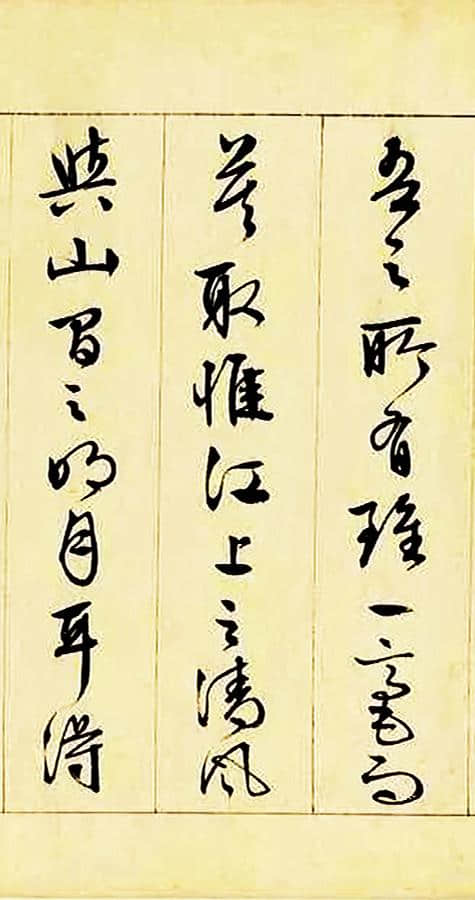 吾之所有雖一毫而
莫取惟江上之清風
與山間之明月耳得